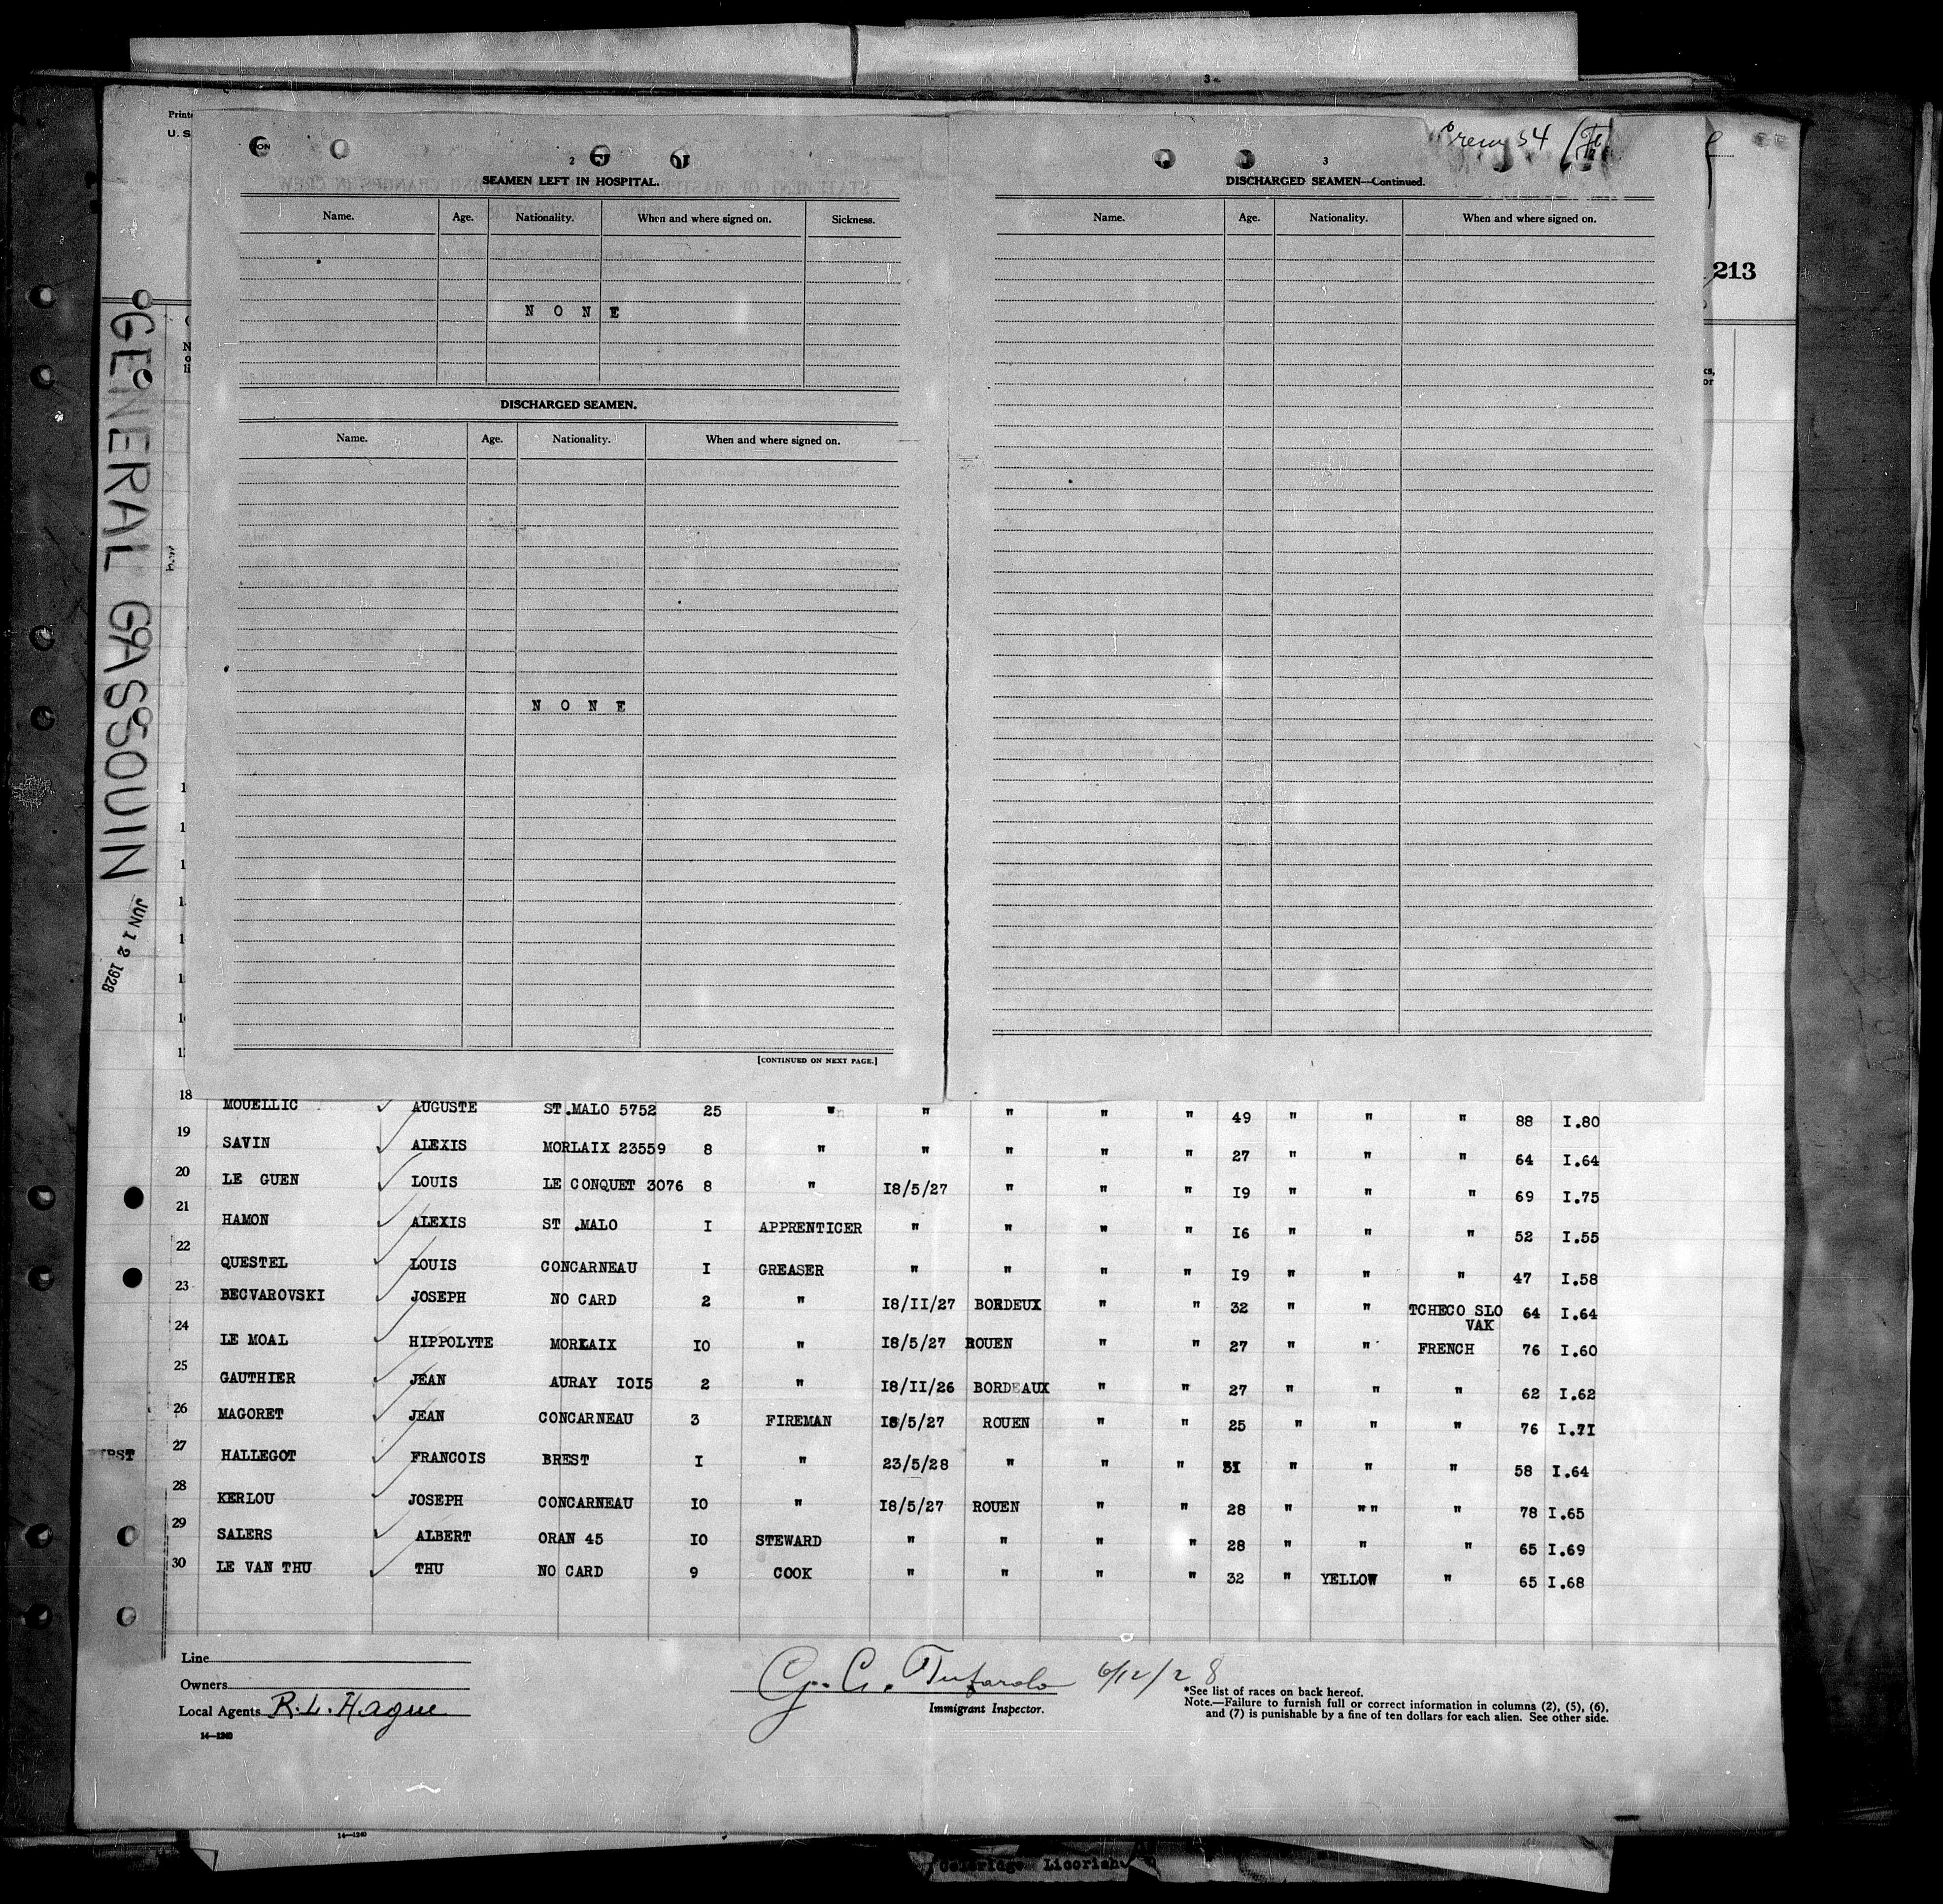 3
Crew 54
U. S.
2
SEAMEN LEFT IN HOSPITAL.
Name. Age. Nationality. When and where signed on. Sickness.
N O N E
DISCHARGED SEAMEN.
Name. Age. Nationality. When and where signed on.
N O N E
[CONTINUED ON NEXT PAGE.]
3
DISCHARGED SEAMEN—Continued.
Name. Age. Nationality. When and where signed on.
213
GENERAL GASSOUIN
JUN 12 1928
18 MOUELLIC AUGUSTE ST.MALO 5752 25 " " " " " 49 " " " 88 I.80
19 SAVIN ALEXIS MORLAIX 23559 8 " " " " " 27 " " " 64 I.64
20 LE GUEN LOUIS LE CONQUET 3076 8 " I8/5/27 " " " I9 " " " 69 I.75
21 HAMON ALEXIS ST .MALO I APPRENTICER " " " " I6 " " " 52 I.55
22 QUESTEL LOUIS CONCARNEAU I GREASER " " " " I9 " " " 47 I.58
23 BECVAROVSKI JOSEPH NO CARD 2 " I8/II/27 BORDEUX " " 32 " " TCHECO SLO 64 I.64
VAK
24 LE MOAL HIPPOLYTE MORLAIX IO " I8/5/27 ROUEN " " 27 " " FRENCH 76 I.60
25 GAUTHIER JEAN AURAY IOI5 2 " I8/II/26 BORDEAUX " " 27 " " " 62 I.62
26 MAGORET JEAN CONCARNEAU 3 FIREMAN I8/5/27 ROUEN " " 25 " " " 76 I.7I
27 HALLEGOT FRANCOIS BREST I " 23/5/28 " " " 3I " " " 58 I.64
28 KERLOU JOSEPH CONCARNEAU IO " I8/5/27 ROUEN " " 28 " "" " 78 I.65
29 SALERS ALBERT ORAN 45 IO STEWARD " " " " 28 " " " 65 I.69
30 LE VAN THU THU NO CARD 9 COOK " " " " 32 " YELLOW " 65 I.68
Line
Owners
Local Agents R.L. Hague
14—1240
6/12/28
Immigrant Inspector.
*See list of races on back hereof.
Note.—Failure to furnish full or correct information in columns (2), (5), (6),
and (7) is punishable by a fine of ten dollars for each alien. See other side.
14—1240
Licorish